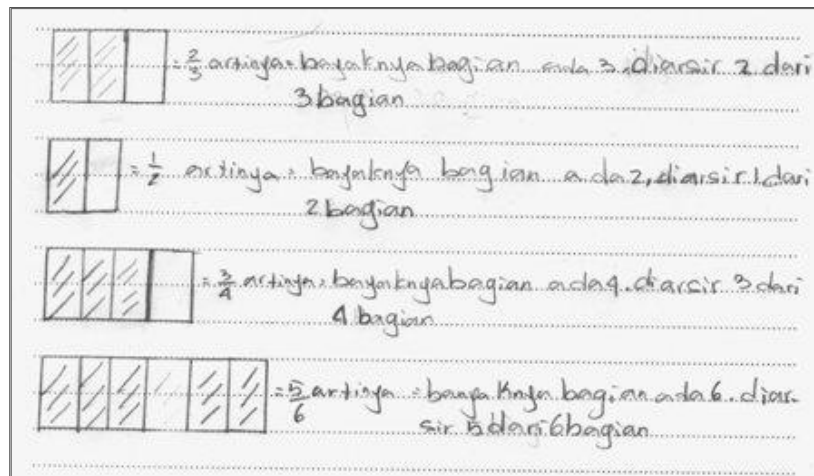 = 2/3 artinya = bayaknya bagian ada 3. diarsir 2 dari
3 bagian
= 1/2 artinya = bayaknya bagian ada 2, diarsir 1 dari
2 bagian
= 3/4 artinya = bayaknya bagian ada 4. diarsir 3 dari
4 bagian
= 5/6 artinya = banyaknya bagian ada 6. diar-
sir 5 dari 6 bagian